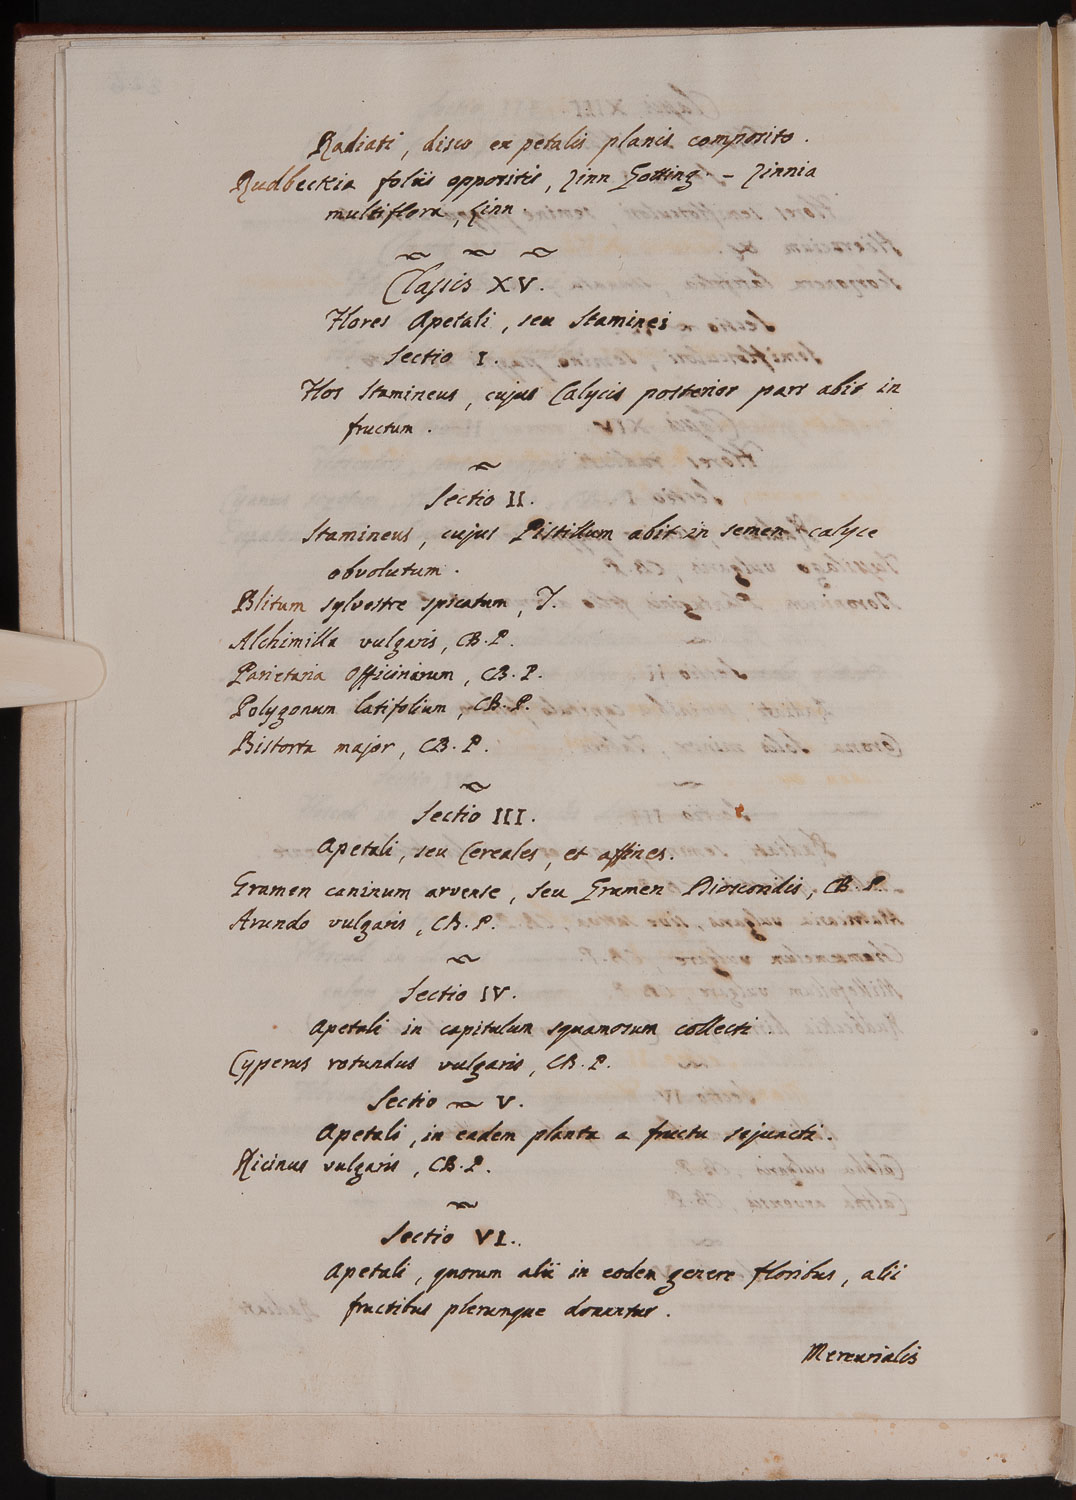 Radiati, disco ex petalis planis composito.
Rudbeckia foliis oppositis, Zinn Gotting. – Zinnia
multiflora, Linn.
Classis XV.
Flores Apetali, seu Staminei
Sectio I.
Flos Stamineus, cujus Calycis posterior pars abit in
fructum.
Sectio II.
Stamineus, cujus Pistillum abit in semen calyce
obvolutum.
Blitum sylvestre spicatum, T.
Alchimilla vulgaris, CB.P.
Parietaria Officinarum, CB.P.
Polygonum latifolium, CB.P.
Bistorta major, CB.P.
Sectio III.
Apetali, seu Cereales, et affines.
Gramen caninum arvense, seu Gramen Dioscoridis, CB.P.
Arundo vulgaris, CB.P.
Sectio IV.
Apetali in capitulum squamosum collecti.
Cyperus rotundus vulgaris, CB.P.
Sectio V.
Apetali, in eadem planta a fructu sejuncti.
Ricinus vulgaris, CB.P.
Sectio VI.
Apetali, quorum alii in eodem genere floribus, alii
fructibus plerunque donantur.
Mercurialis